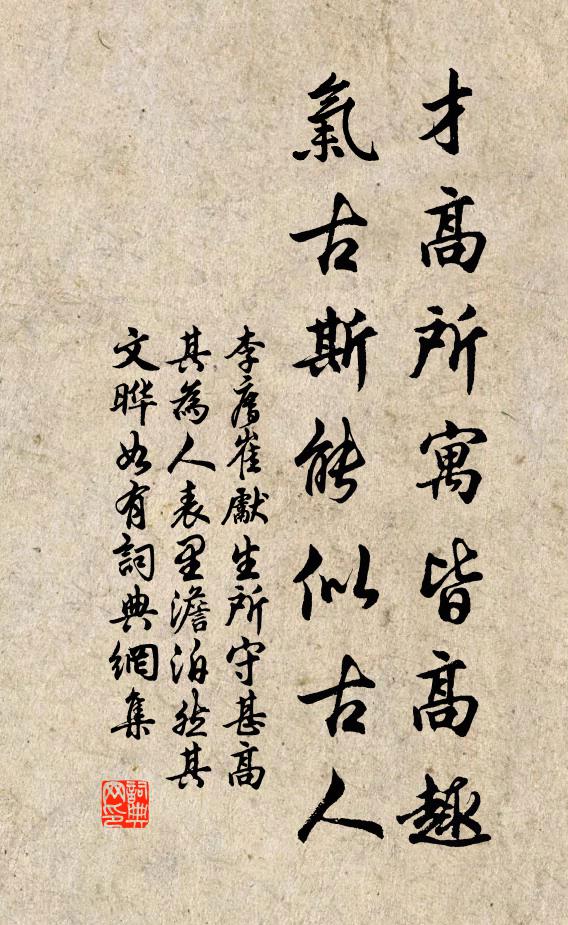 才高所寓皆高趣
氣古斯能似古人
李崔獻生所守甚高
其為人表里澹泊然其
文曄如有詞典網集
詞典
网印